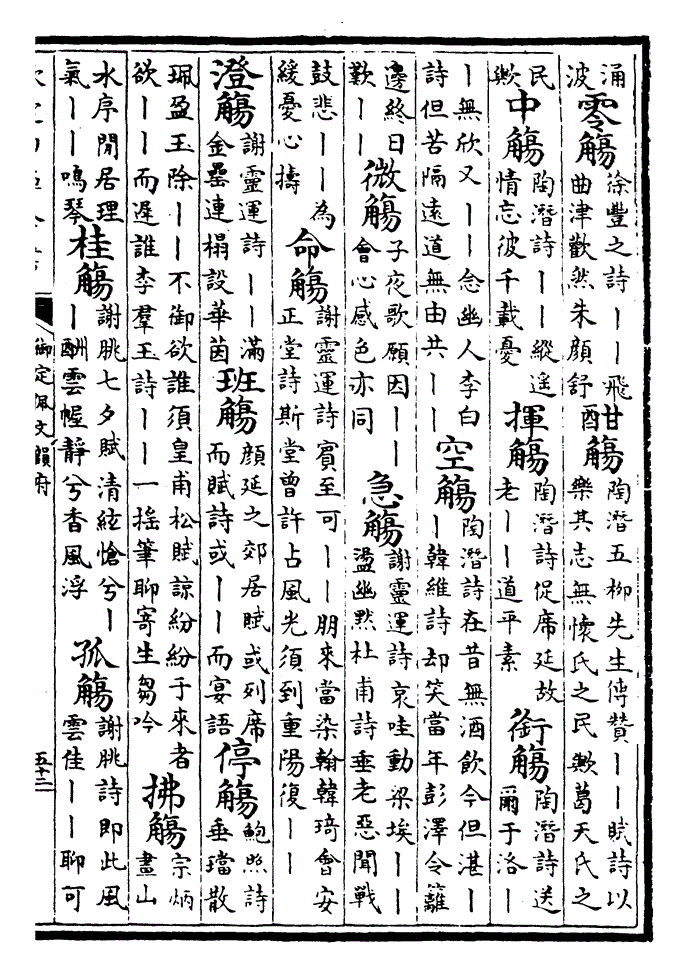 涌波零觴徐豐之詩丨丨飛曲津歡然朱顏舒酣觴陶潛五柳先生傳贊丨丨賦詩以樂其志無懷氏之民歟葛天氏之
民歟中觴陶潛詩丨丨縱遙情忘彼千載憂揮觴陶潛詩促席延故老丨丨道平素銜觴陶潛詩送爾于洛丨
丨無欣又丨丨念幽人李白詩但苦隔遠道無由共丨丨空觴陶潛詩在昔無酒飲今但湛丨丨韓維詩却笑當年彭澤令籬
邊終日歎丨丨微觴子夜歌願因丨丨會心感色亦同急觴謝靈運詩哀哇動梁埃丨丨盪幽默杜甫詩垂老惡聞戰
鼓悲丨丨為緩憂心擣命觴謝靈運詩賓至可丨丨朋來當染翰韓琦會安正堂詩斯堂曾許占風光須到重陽復丨丨
澄觴謝靈運詩丨丨滿金罍連榻設華茵班觴顏延之郊居賦或列席而賦詩或丨丨而宴語停觴鮑照詩垂璫散
珮盈玉除丨丨不御欲誰須皇甫松賦諒紛紛于來者欲丨丨而遲誰李羣玉詩丨丨一搖筆聊寄生芻吟拂觴宗炳畫山
水序閒居理氣丨丨鳴琴桂觴謝朓七夕賦清絃愴兮丨丨酬雲幄靜兮香風浮孤觴謝朓詩即此風雲佳丨丨聊可
御定佩文韻府
五十三